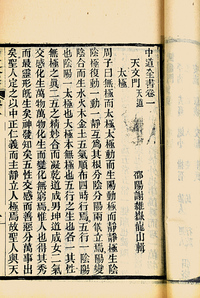 中道全書卷一
天文門 天道
邵陽謝維嶽龍山輯
太極
周子曰無極而太極太極動而生陽動極而靜靜而生陰
靜極復動一動一靜互爲其根分陰分陽兩儀立焉陽變
陰合而生水火木金土五氣順布四時行焉五行一陰陽
也陰陽一太極也太極本無極也五行之生也各一其性
無極之眞二五之精妙合而凝乾道成男坤道成女二氣
交感化生萬物萬物化生而變化無窮焉惟人也得其秀
而最靈形旣生矣神發知矣五性感動而善惡分萬事出
矣聖人定之以中正仁義而主靜立人極焉故聖人與天